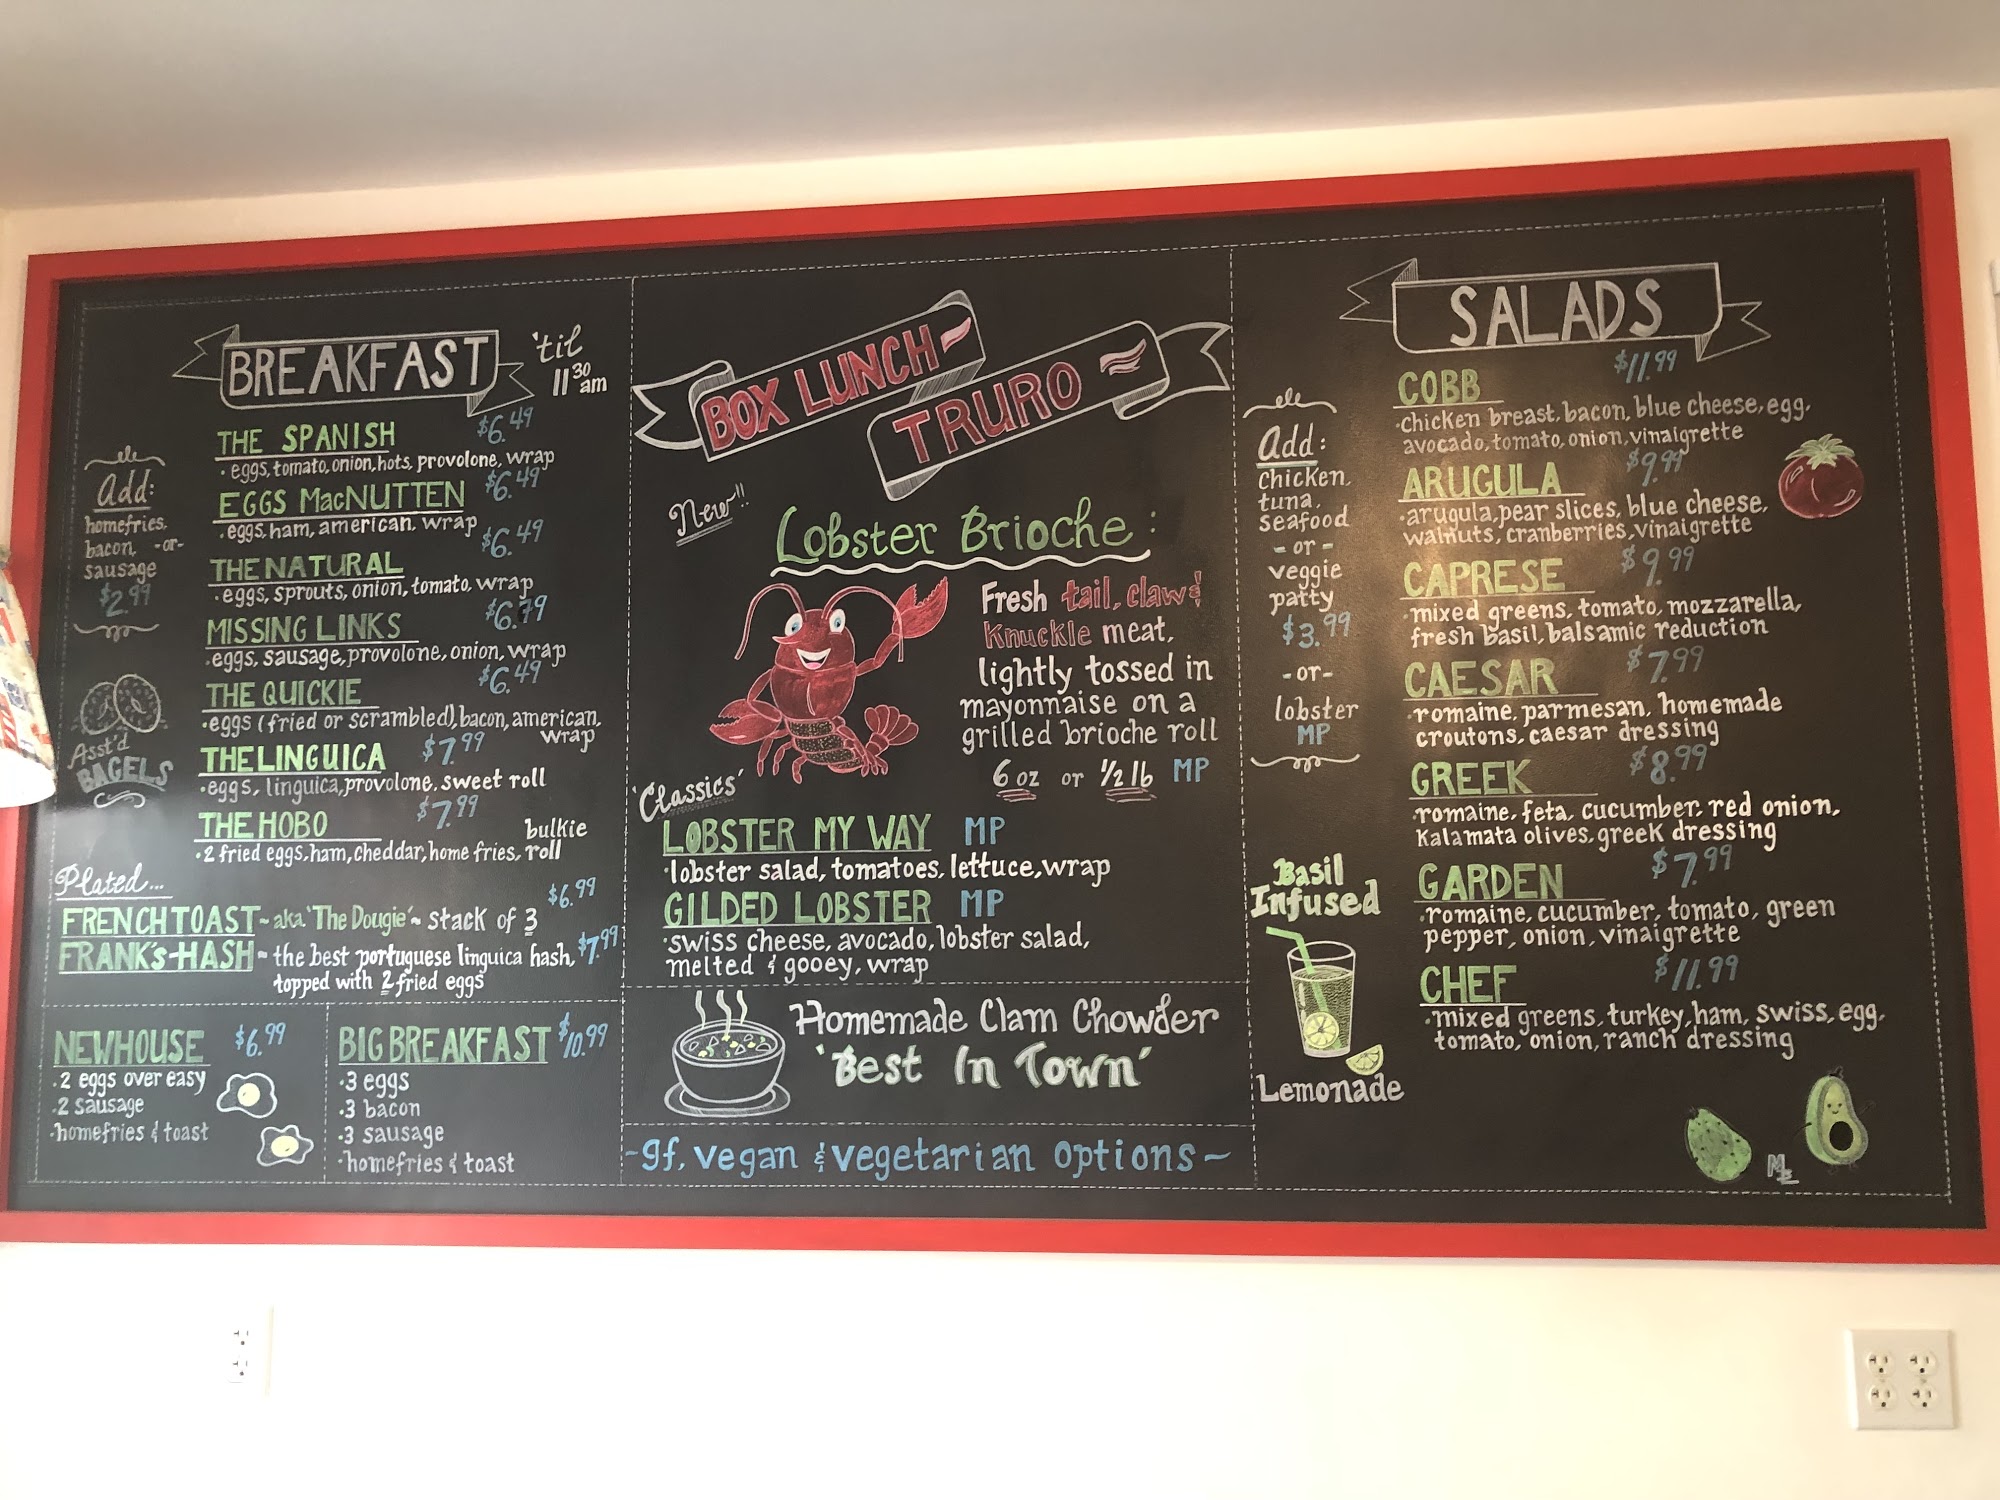 BREAKFAST
'til
11 30 am
Add:
homefries,
bacon, -or-
sausage
$2.99
THE SPANISH $6.49
• eggs, tomato, onion, hots, provolone, wrap
EGGS MacNUTTEN $6.49
• eggs, ham, american, wrap
THE NATURAL $6.49
• eggs, sprouts, onion, tomato, wrap
MISSING LINKS $6.79
• eggs, sausage, provolone, onion, wrap
THE QUICKIE $6.49
• eggs (fried or scrambled), bacon, american,
wrap
THE LINGUICA $7.99
• eggs, linguica, provolone, sweet roll
THE HOBO $7.99
• 2 fried eggs, ham, cheddar, home fries, bulkie
roll
Asst'd
BAGELS
Plated...
FRENCH TOAST ~ aka 'The Dougie' ~ stack of 3 $6.99
FRANK'S-HASH ~ the best portuguese linguica hash, $7.99
topped with 2 fried eggs
NEWHOUSE $6.99
• 2 eggs over easy
• 2 sausage
• homefries & toast
BIG BREAKFAST $10.99
• 3 eggs
• 3 bacon
• 3 sausage
• homefries & toast
BOX LUNCH
TRURO
New!!
Lobster Brioche:
Fresh tail, claw &
Knuckle meat,
lightly tossed in
mayonnaise on a
grilled brioche roll
6 oz or 1/2 lb MP
'Classics'
LOBSTER MY WAY MP
• lobster salad, tomatoes, lettuce, wrap
GILDED LOBSTER MP
• swiss cheese, avocado, lobster salad,
melted & gooey, wrap
Homemade Clam Chowder
'Best In Town'
-gf, vegan & vegetarian options~
SALADS
Add:
chicken,
tuna,
seafood
-or-
veggie
patty
$3.99
-or-
lobster
MP
Basil
Infused
Lemonade
COBB $11.99
• chicken breast, bacon, blue cheese, egg,
avocado, tomato, onion, vinaigrette
ARUGULA $9.99
• arugula, pear slices, blue cheese,
walnuts, cranberries, vinaigrette
CAPRESE $9.99
• mixed greens, tomato, mozzarella,
fresh basil, balsamic reduction
CAESAR $7.99
• romaine, parmesan, homemade
croutons, caesar dressing
GREEK $8.99
• romaine, feta, cucumber, red onion,
Kalamata olives, greek dressing
GARDEN $7.99
• romaine, cucumber, tomato, green
pepper, onion, vinaigrette
CHEF $11.99
• mixed greens, turkey, ham, swiss, egg,
tomato, onion, ranch dressing